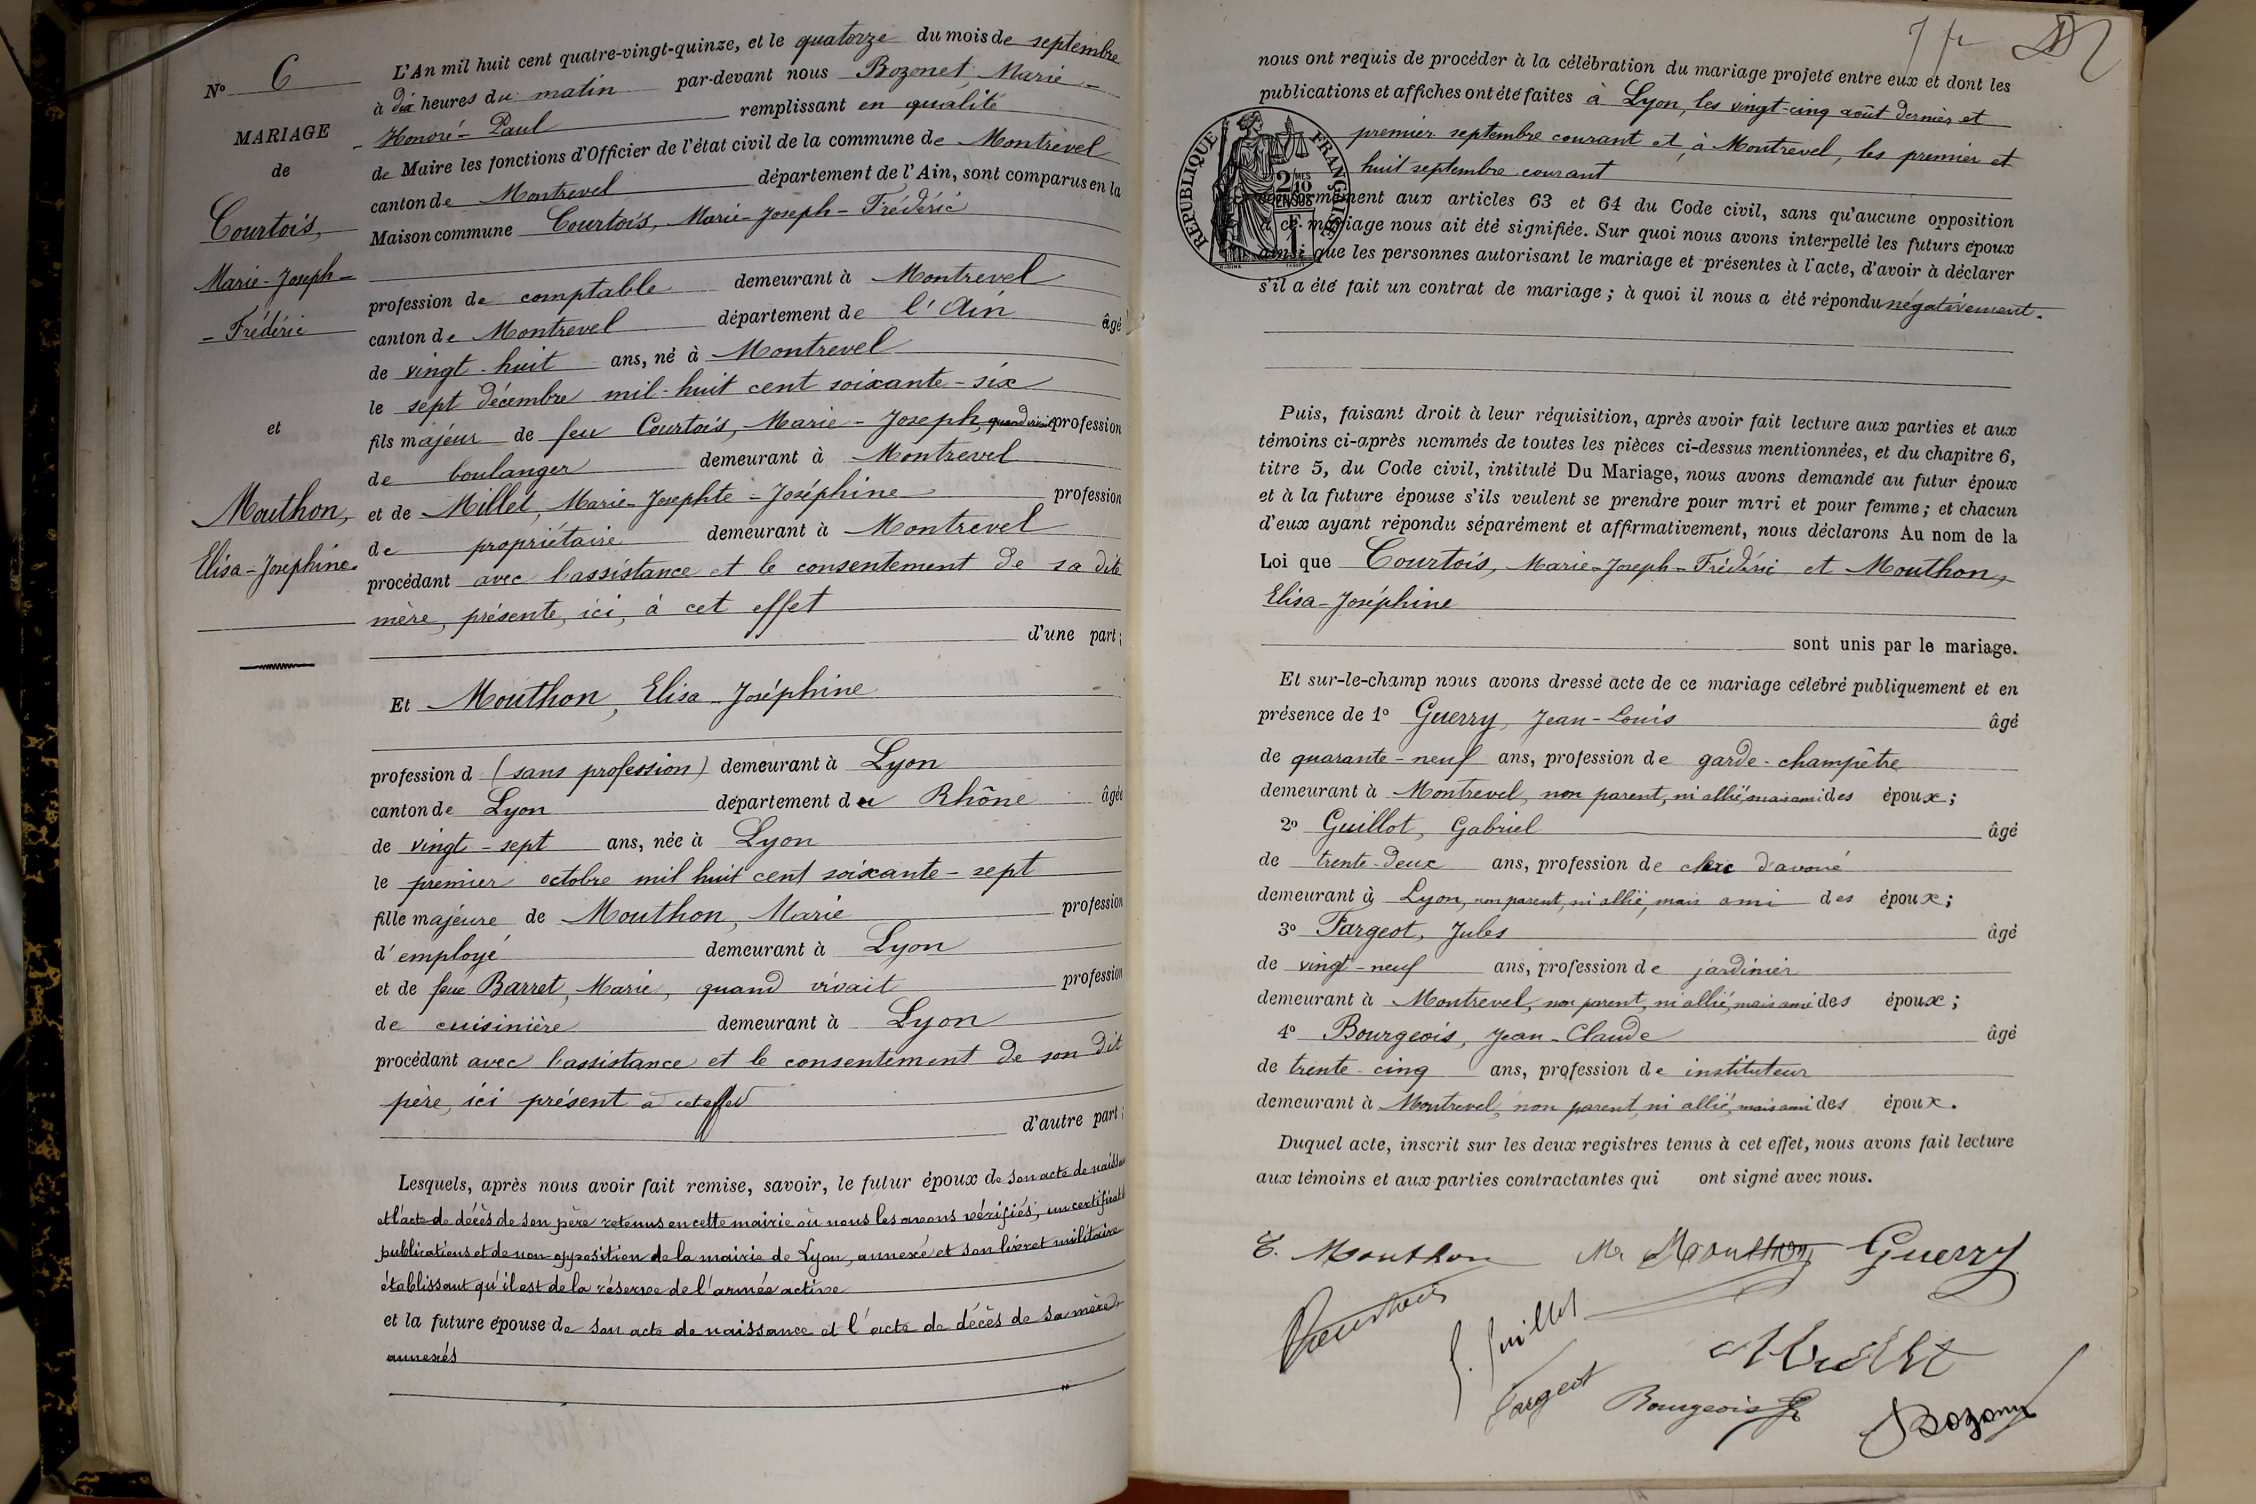 N° 6
MARIAGE
de
Courtois,
Marie-Joseph-
-Frédéric
et
Mouthon,
Elisa-Joséphine.
L'An mil huit cent quatre-vingt-quinze, et le quatorze du mois de septembre
à dix heures du matin par-devant nous Bozonet Marie-
-Honoré-Paul remplissant en qualité
de Maire les fonctions d'Officier de l'état civil de la commune de Montrevel
canton de Montrevel département de l'Ain, sont comparus en la
Maison commune Courtois, Marie-Joseph-Frédéric
profession de comptable demeurant à Montrevel
canton de Montrevel département de l'Ain âgé
de vingt-huit ans, né à Montrevel
le sept décembre mil-huit cent soixante-six
fils majeur de feu Courtois, Marie-Joseph quand vivait profession
de boulanger demeurant à Montrevel
et de Millet, Marie-Josephte-Joséphine profession
de propriétaire demeurant à Montrevel
procédant avec l'assistance et le consentement de sa dite
mère, présente, ici, à cet effet
d'une part;
Et Mouthon, Elisa-Joséphine
profession d (sans profession) demeurant à Lyon
canton de Lyon département du Rhône âgée
de vingt-sept ans, née à Lyon
le premier octobre mil huit cent soixante-sept
fille majeure de Mouthon, Marie profession
d'employé demeurant à Lyon
et de feue Barret, Marie, quand vivait profession
de cuisinière demeurant à Lyon
procédant avec l'assistance et le consentement de son dit
père, ici présent à cet effet
d'autre part;
Lesquels, après nous avoir fait remise, savoir, le futur époux de son acte de naissance
et l'acte de décès de son père retenus en cette mairie où nous les avons vérifiés, un certificat de
publications et de non-opposition de la mairie de Lyon, annexé et son livret militaire
établissant qu'il est de la réserve de l'armée active
et la future épouse de son acte de naissance et l'acte de décès de sa mère
annexés
nous ont requis de procéder à la célébration du mariage projeté entre eux et dont les
publications et affiches ont été faites à Lyon, les vingt-cinq août dernier et
premier septembre courant et, à Montrevel, les premier et
huit septembre courant
RÉPUBLIQUE FRANÇAISE
2/10 EN SUS
conformément aux articles 63 et 64 du Code civil, sans qu'aucune opposition
à ce mariage nous ait été signifiée. Sur quoi nous avons interpellé les futurs époux
ainsi que les personnes autorisant le mariage et présentes à l'acte, d'avoir à déclarer
s'il a été fait un contrat de mariage; à quoi il nous a été répondu négativement.
Puis, faisant droit à leur réquisition, après avoir fait lecture aux parties et aux
témoins ci-après nommés de toutes les pièces ci-dessus mentionnées, et du chapitre 6,
titre 5, du Code civil, intitulé Du Mariage, nous avons demandé au futur époux
et à la future épouse s'ils veulent se prendre pour mari et pour femme; et chacun
d'eux ayant répondu séparément et affirmativement, nous déclarons Au nom de la
Loi que Courtois, Marie-Joseph-Frédéric et Mouthon,
Elisa-Joséphine
sont unis par le mariage.
Et sur-le-champ nous avons dressé acte de ce mariage célébré publiquement et en
présence de 1° Guerry, Jean-Louis âgé
de quarante-neuf ans, profession de garde-champêtre
demeurant à Montrevel, non parent, ni allié, mais ami des époux;
2° Guillot, Gabriel âgé
de trente-deux ans, profession de clerc d'avoué
demeurant à Lyon, non parent, ni allié, mais ami des époux;
3° Fargeot, Jules âgé
de vingt-neuf ans, profession de jardinier
demeurant à Montrevel, non parent, ni allié, mais ami des époux;
4° Bourgeois, Jean-Claude âgé
de trente-cinq ans, profession de instituteur
demeurant à Montrevel, non parent, ni allié, mais ami des époux.
Duquel acte, inscrit sur les deux registres tenus à cet effet, nous avons fait lecture
aux témoins et aux parties contractantes qui ont signé avec nous.
E. Mouthon Me Mouthon Guerry
Courtois G. Guillot
Fargeot Bourgeois Bozonet